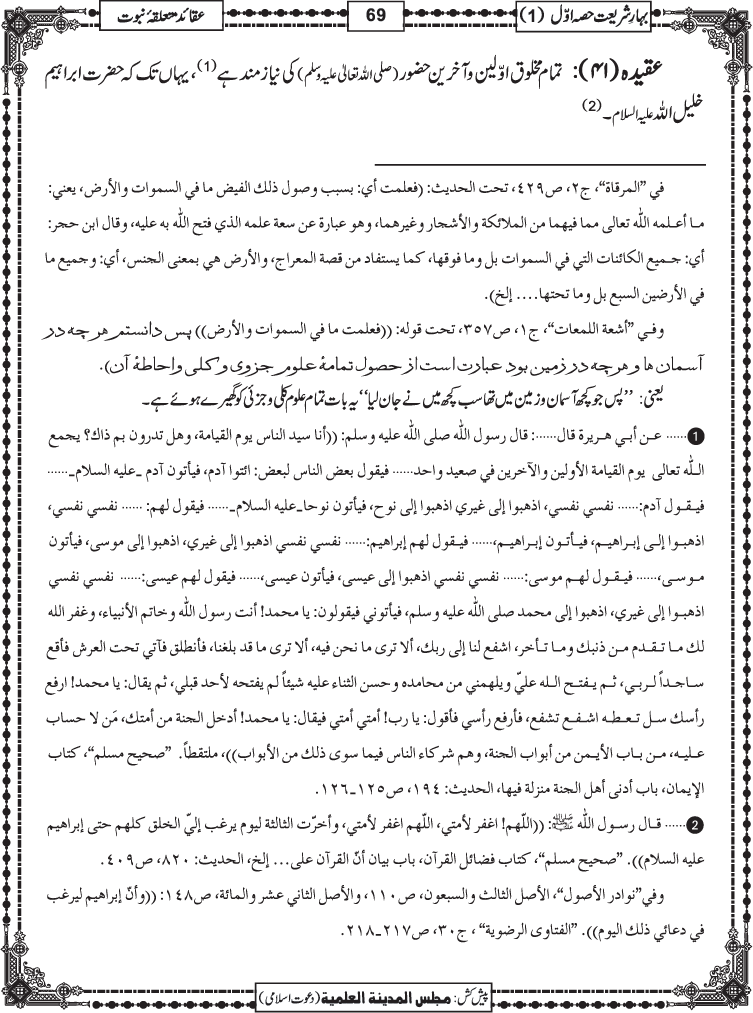 بہارِ شریعت حصہ اوّل (1)
69
عقائد متعلقۂ نبوت
عقیدہ (۴۱): تمام مخلوق اوّلین و آخرین حضور (صلی اللہ تعالیٰ علیہ وسلم) کی نیاز مند ہے (1)، یہاں تک کہ حضرت ابراہیم
خلیل اللہ علیہ السلام۔ (2)
في "المرقاة"، ج۲، ص٤٢٩، تحت الحديث: (فعلمت أي: بسبب وصول ذلك الفيض ما في السموات والأرض، يعني:
ما أعلمه الله تعالى مما فيهما من الملائكة والأشجار وغيرهما، وهو عبارة عن سعة علمه الذي فتح الله به عليه، وقال ابن حجر:
أي: جميع الكائنات التي في السموات بل وما فوقها، كما يستفاد من قصة المعراج، والأرض هي بمعنى الجنس، أي: وجميع ما
في الأرضين السبع بل وما تحتها.... إلخ).
وفي "أشعة اللمعات"، ج۱، ص۳۵۷، تحت قوله: ((فعلمت ما في السموات والأرض)) پس دانستم هر چه در
آسمان ها و هر چه در زمین بود عبارت است از حصول تمامۀ علوم جزوی و کلی و احاطۀ آن).
یعنی: "پس جو کچھ آسمان و زمین میں تھا سب کچھ میں نے جان لیا" یہ بات تمام علوم کلی و جزئی کو گھیرے ہوئے ہے۔
1 ...... عن أبي هريرة قال......: قال رسول الله صلى الله عليه وسلم: ((أنا سيد الناس يوم القيامة، وهل تدرون بم ذاك؟ يجمع
الله تعالى يوم القيامة الأولين والآخرين في صعيد واحد...... فيقول بعض الناس لبعض: ائتوا آدم، فيأتون آدم ـ عليه السلام ـ......
فيقول آدم:...... نفسي نفسي، اذهبوا إلى غيري اذهبوا إلى نوح، فيأتون نوحا ـ عليه السلام ـ...... فيقول لهم: ...... نفسي نفسي،
اذهبوا إلى إبراهيم، فيأتون إبراهيم،...... فيقول لهم إبراهيم:...... نفسي نفسي اذهبوا إلى غيري، اذهبوا إلى موسى، فيأتون
موسى،...... فيقول لهم موسى:...... نفسي نفسي اذهبوا إلى عيسى، فيأتون عيسى،...... فيقول لهم عيسى:...... نفسي نفسي
اذهبوا إلى غيري، اذهبوا إلى محمد صلى الله عليه وسلم، فيأتوني فيقولون: يا محمد! أنت رسول الله وخاتم الأنبياء، وغفر الله
لك ما تقدم من ذنبك وما تأخر، اشفع لنا إلى ربك، ألا ترى ما نحن فيه، ألا ترى ما قد بلغنا، فأنطلق فآتي تحت العرش فأقع
ساجداً لربي، ثم يفتح الله عليّ ويلهمني من محامده وحسن الثناء عليه شيئاً لم يفتحه لأحد قبلي، ثم يقال: يا محمد! ارفع
رأسك سل تعطه اشفع تشفع، فأرفع رأسي فأقول: يا رب! أمتي أمتي فيقال: يا محمد! أدخل الجنة من أمتك، مَن لا حساب
عليه، من باب الأيمن من أبواب الجنة، وهم شركاء الناس فيما سوى ذلك من الأبواب))، ملتقطاً. "صحيح مسلم"، كتاب
الإيمان، باب أدنى أهل الجنة منزلة فيها، الحديث: ١٩٤، ص١٢٥ـ١٢٦.
2 ...... قال رسول الله ﷺ: ((اللّهم! اغفر لأمتي، اللّهم اغفر لأمتي، وأخرّت الثالثة ليوم يرغب إليّ الخلق كلهم حتى إبراهيم
عليه السلام)). "صحيح مسلم"، كتاب فضائل القرآن، باب بيان أنّ القرآن على... إلخ، الحديث: ٨٢٠، ص٤٠٩.
وفي "نوادر الأصول"، الأصل الثالث والسبعون، ص١١٠، والأصل الثاني عشر والمائة، ص١٤٨: ((وأنّ إبراهيم ليرغب
في دعائي ذلك اليوم)). "الفتاوى الرضوية"، ج٣٠، ص٢١٧ـ٢١٨.
پیش کش: مجلس المدينة العلمية (دعوت اسلامی)